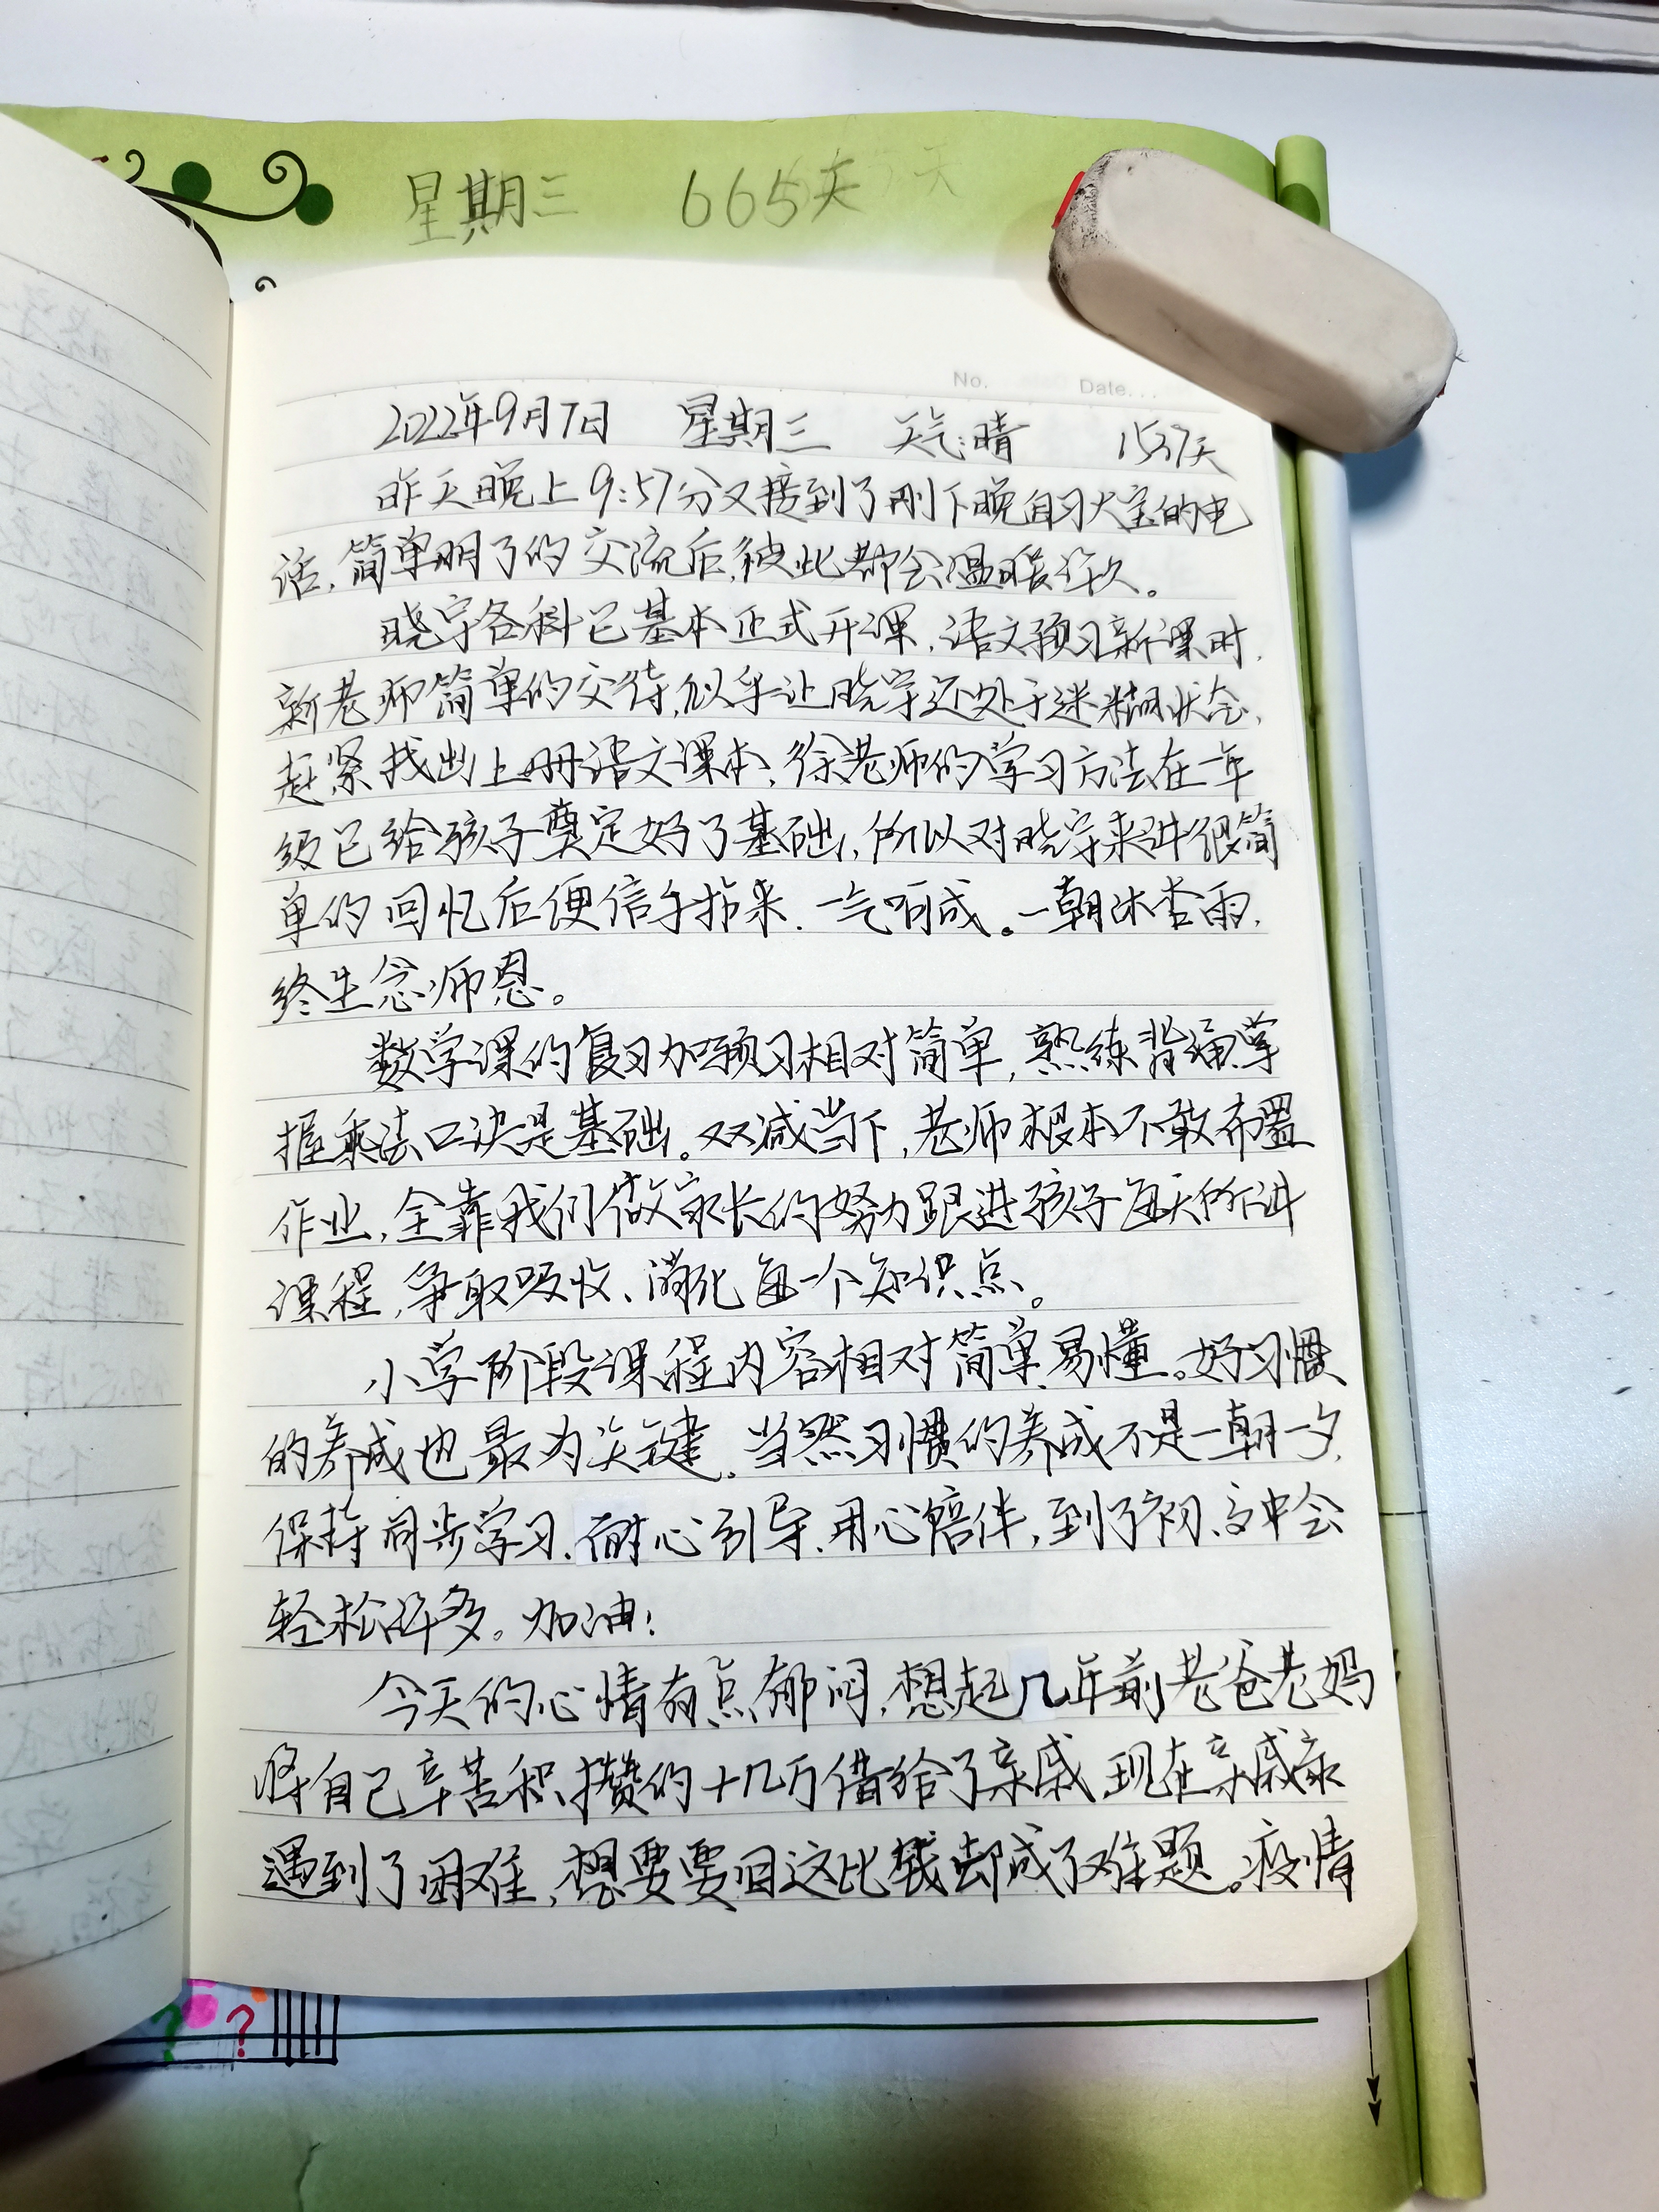 星期三 665天
No. Date...
2022年9月7日 星期三 天气:晴 1537天
昨天晚上9:57分又接到了刚下晚自习大宝的电
话,简单明了的交流后,彼此都会温暖许久。
晓宇各科已基本正式开课,语文预习新课时,
新老师简单的交待,似乎让晓宇还处于迷糊状态,
赶紧找出上册语文课本,徐老师的学习方法在一年
级已给孩子奠定好了基础,所以对晓宇来讲很简
单的回忆后便信手拈来,一气呵成。一朝沐杏雨,
终生念师恩。
数学课的复习加预习相对简单,熟练背诵掌
握乘法口决是基础。双减当下,老师根本不敢布置
作业,全靠我们做家长的努力跟进孩子每天所讲
课程,争取吸收、消化每一个知识点。
小学阶段课程内容相对简单、易懂。好习惯
的养成也最为关键。当然习惯的养成不是一朝一夕,
保持同步学习、耐心引导、用心陪伴,到了初、高中会
轻松许多。加油!
今天的心情有点郁闷,想起几年前老爸老妈
将自己辛苦积攒的十几万借给了亲戚,现在亲戚家
遇到了困难,想要要回这比钱却成了难题。疫情
? ?